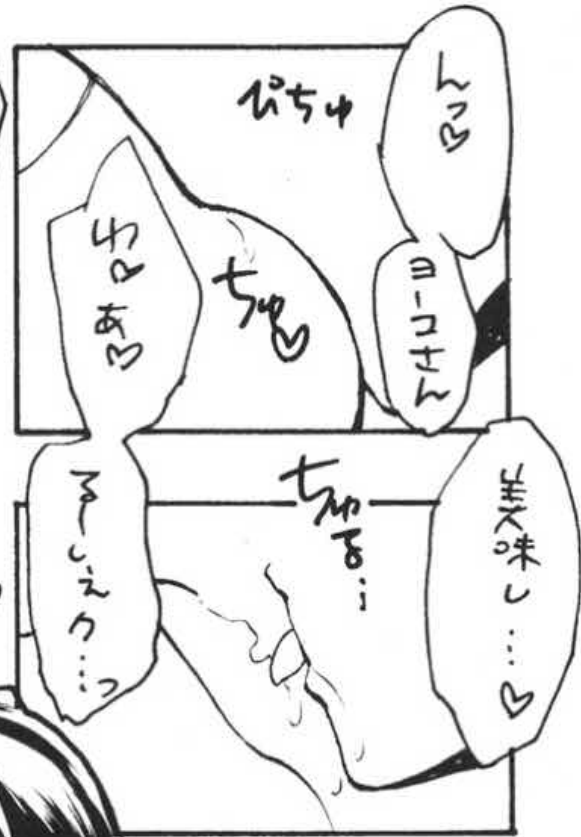 んっ♡
ヨーコさん
ぴちゅ
ちゅ♡
あ♡
美味し…♡
ちゅる…
るしえク…っ